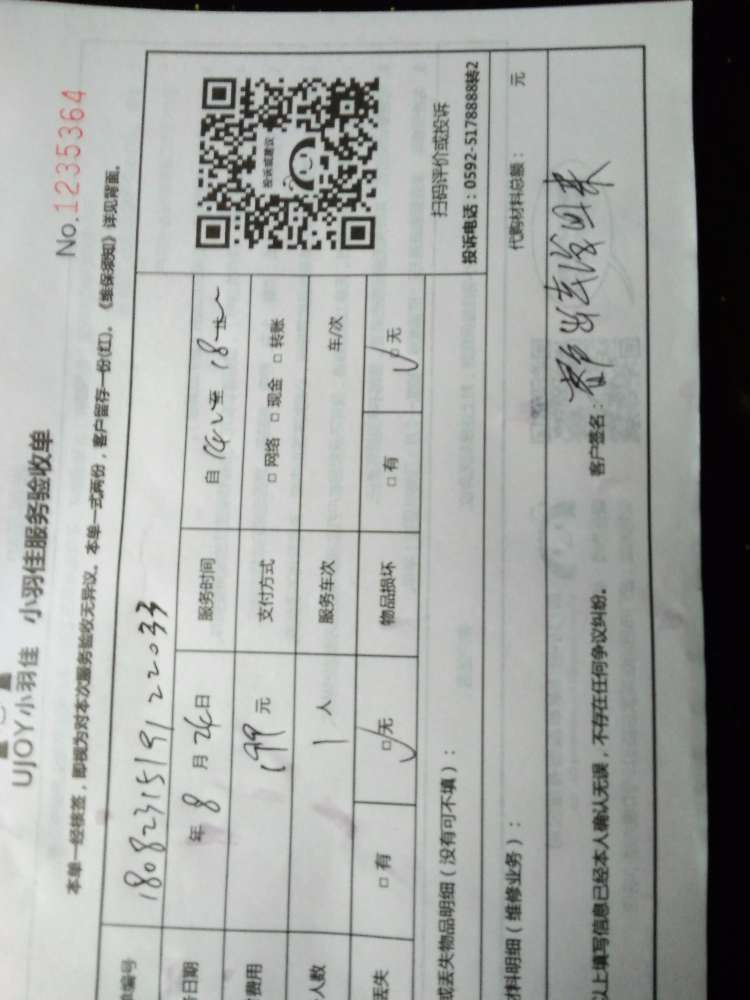 UJOY小羽佳 小羽佳服务验收单
No.1235364
本单一经核签，即视为对本次服务验收无异议。本单一式两份，客户留存一份(红)。《维保须知》详见背面。
单编号 180823151912 2033
日期 年 8 月 24 日 服务时间 自 14 至 18
费用 199 元 支付方式 □ 网络 □ 现金 □ 转账
人数 1 人 服务车次 车/次
丢失 □ 有 □ 无 物品损坏 □ 有 □ 无
投诉或建议
扫码评价或投诉
投诉电话：0592-5178888转2
或丢失物品明细（没有可不填）：
材料明细（维修业务）： 代购材料总额： 元
以上填写信息已经本人确认无误，不存在任何争议纠纷。 客户签名：